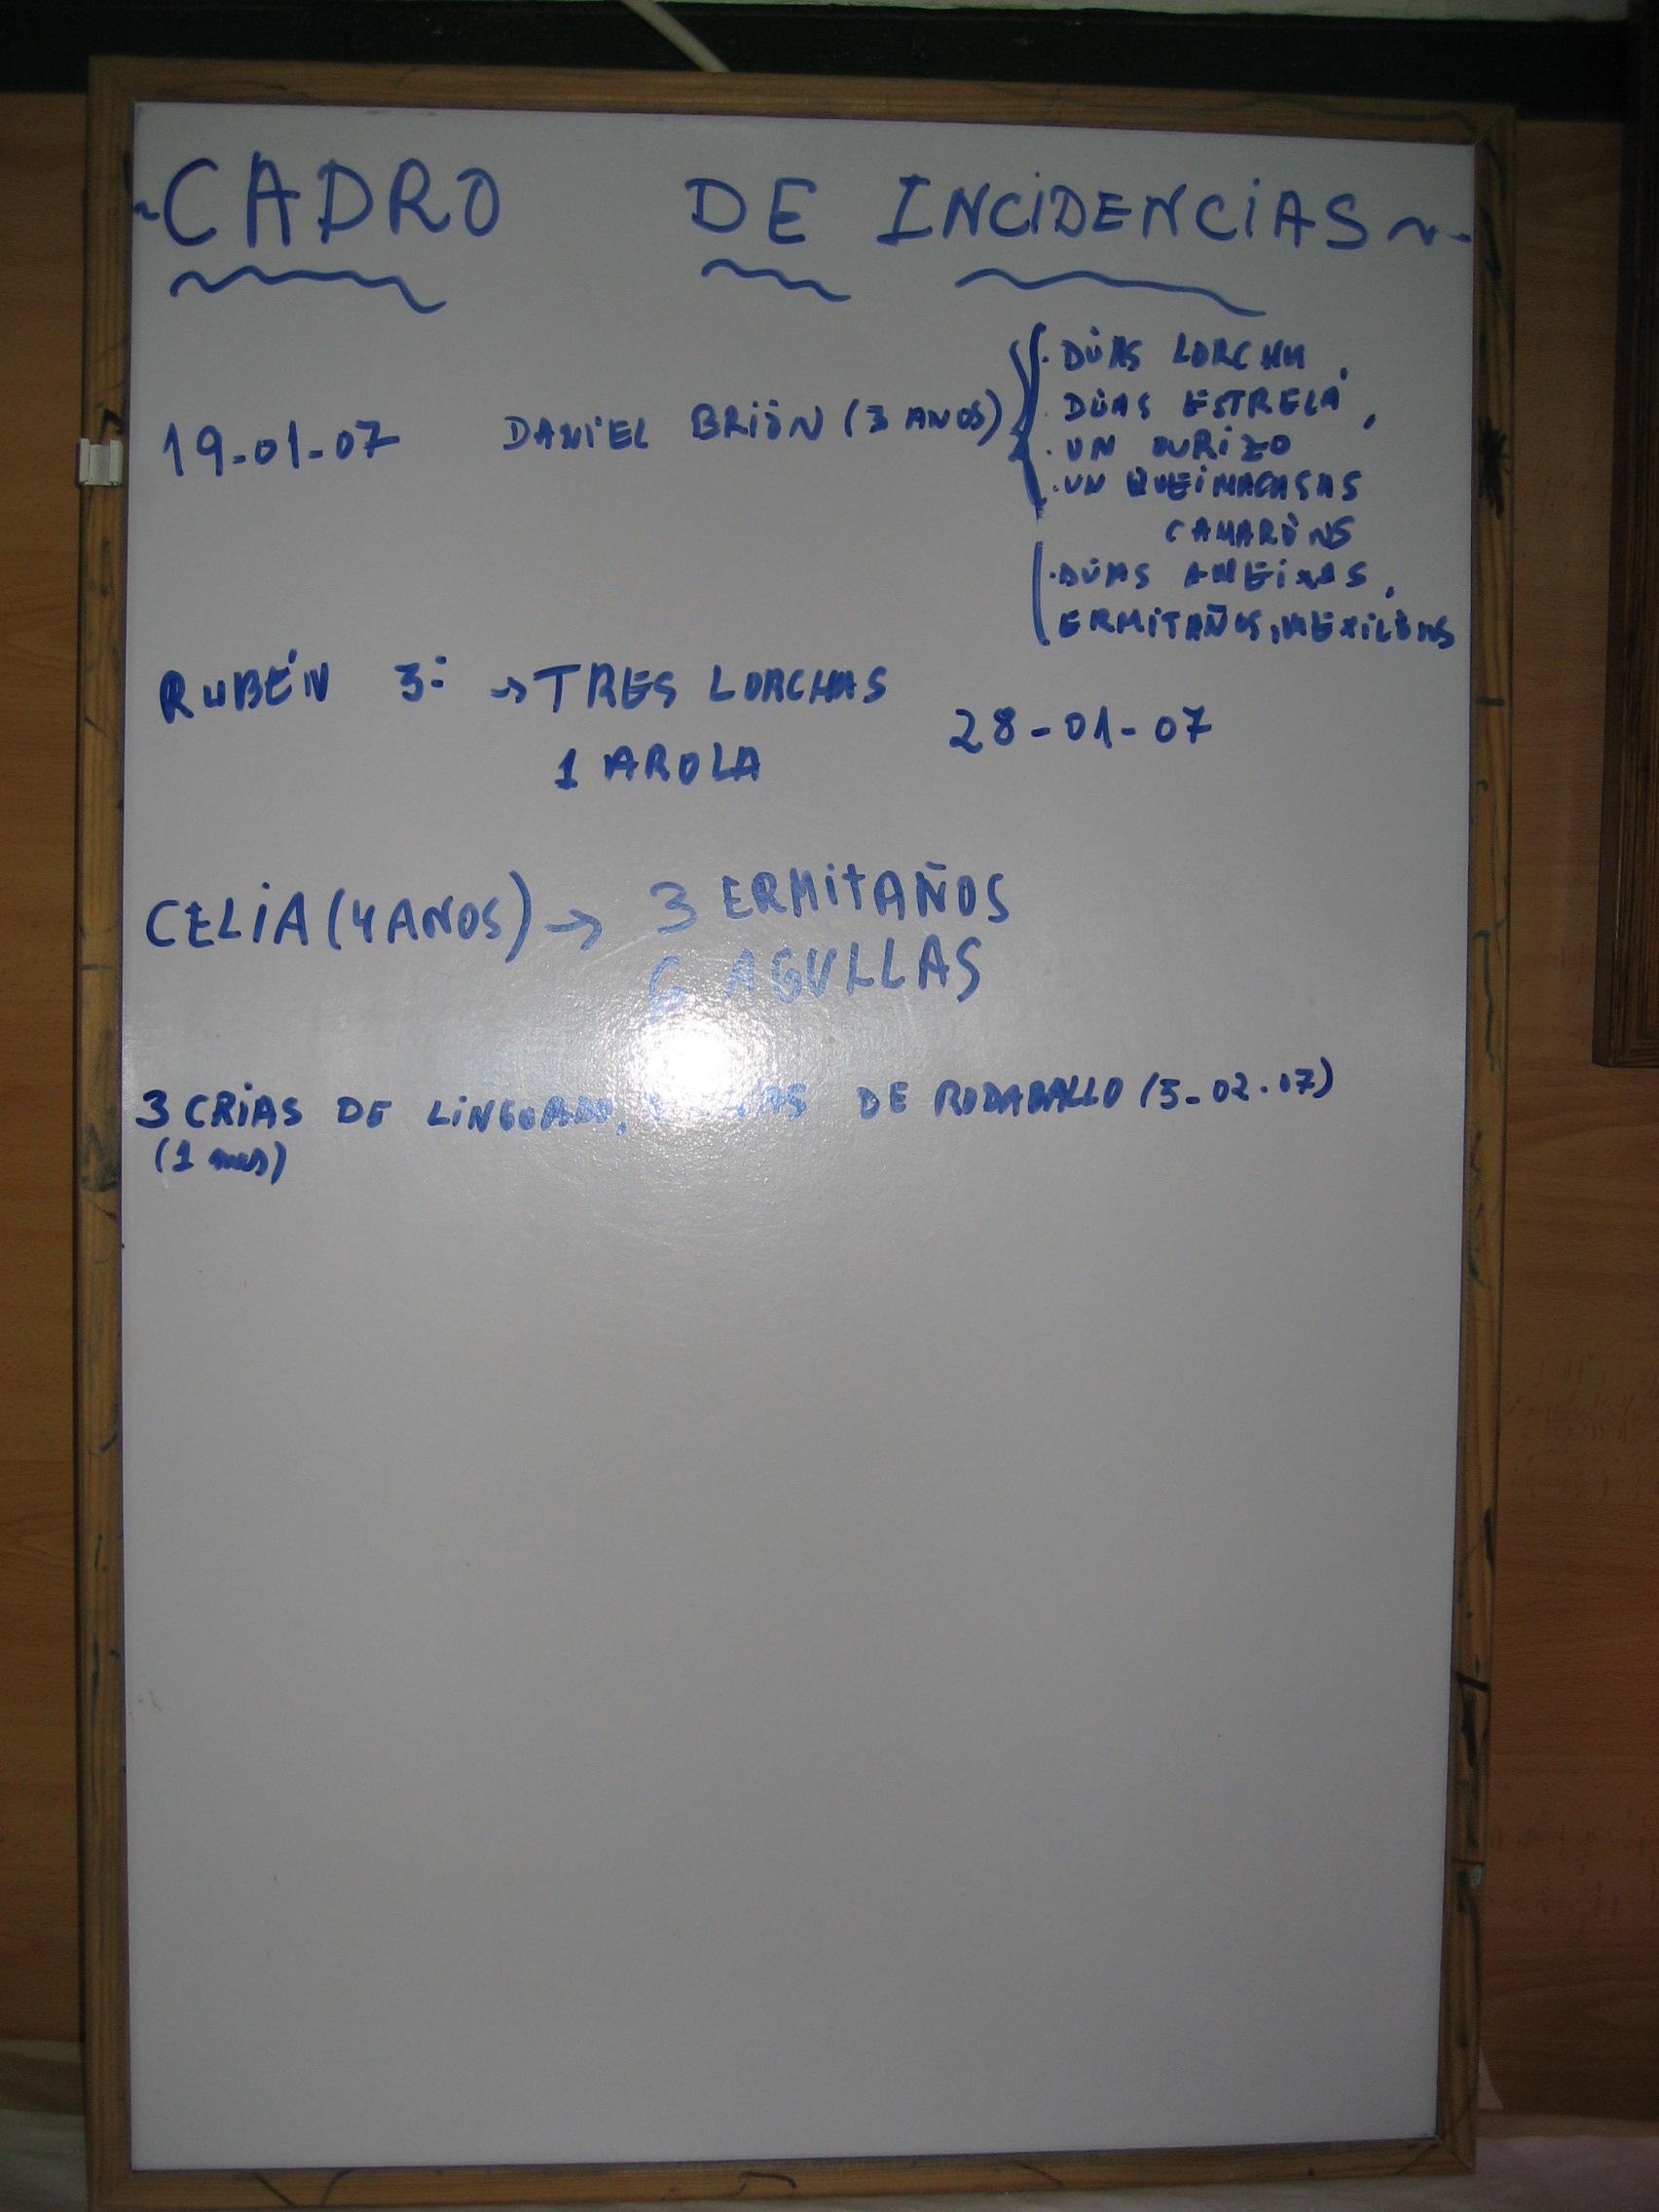 ~CADRO DE INCIDENCIAS~
19-01-07 DANIEL BRIÓN (3 ANOS)
· DÚAS LORCHA,
· DÚAS ESTRELA,
· UN OURIZO
· UN QUEIMACASAS
CAMARÓNS
· DÚAS AMEIXAS,
ERMITAÑOS, MEXILÓNS
RUBÉN 3: → TRES LORCHAS
1 AROLA
28-01-07
CELIA (4 ANOS) → 3 ERMITAÑOS
6 AGULLAS
3 CRIAS DE LINGUADO, DE RODABALLO (3-02-07)
(1 mes)